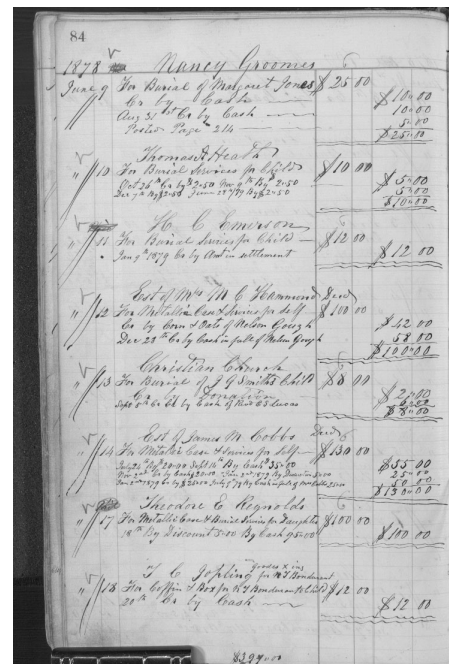 84
1878 Nancy Groomes
June 9 For Burial of Margaret Jones $25 00
Cr by Cash $10"00
Aug 31st Cr by Cash 10"00
Posted Page 214 5 00
$25"00
Thomas A Heath
" 10 For Burial Services for Child $10 00
Oct 26th Cr by $2.50 Nov 9th By $2.50 $5"00
Dec 7th By $2.50 By $2.50 5"00
$10"00
H. C. Emerson
" 11 For Burial Services for Child $12 00
Jan 9th 1879 Cr by Amt in settlement $12 00
Est of Mrs M C Hammond Decd
" 12 For Metallic Case & Services for self $100 00
Cr by Corn & Oats of Nelson Gough $42 00
Dec 23 Cr by Cash in full of Nelson Gough 58 00
$100"00
Christian Church
" 13 For Burial of J G Smiths Child $8 00
Cr by Donation $2"00
Sept 5th Cr by Cash of Lucas 6"00
$8"00
Est of James M. Cobbs Decd
" 14 For Metalic Case & Services for self $130 00
Sept 14th By Cash $35"00 $55 00
25"00
50 00
$130"00
Theodore E Reynolds
" 17 For Metallic Case & Burial Services for Daughter $100 00
18th By Discount 5"00 By Cash 95"00 $100 00
T C Jopling for W T Bondurant
" 18 For Coffin & Box for W T Bondurants Child $12 00
20th Cr by Cash $12 00
$397"00